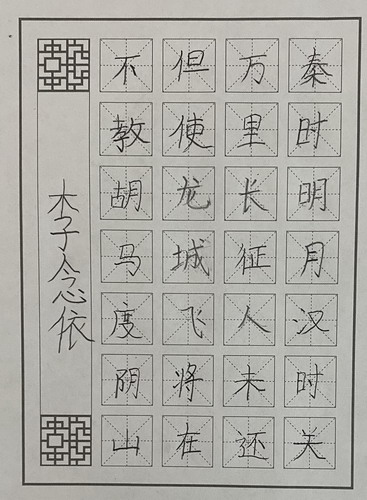 秦时明月汉时关
万里长征人未还
但使龙城飞将在
不教胡马度阴山
木子念依